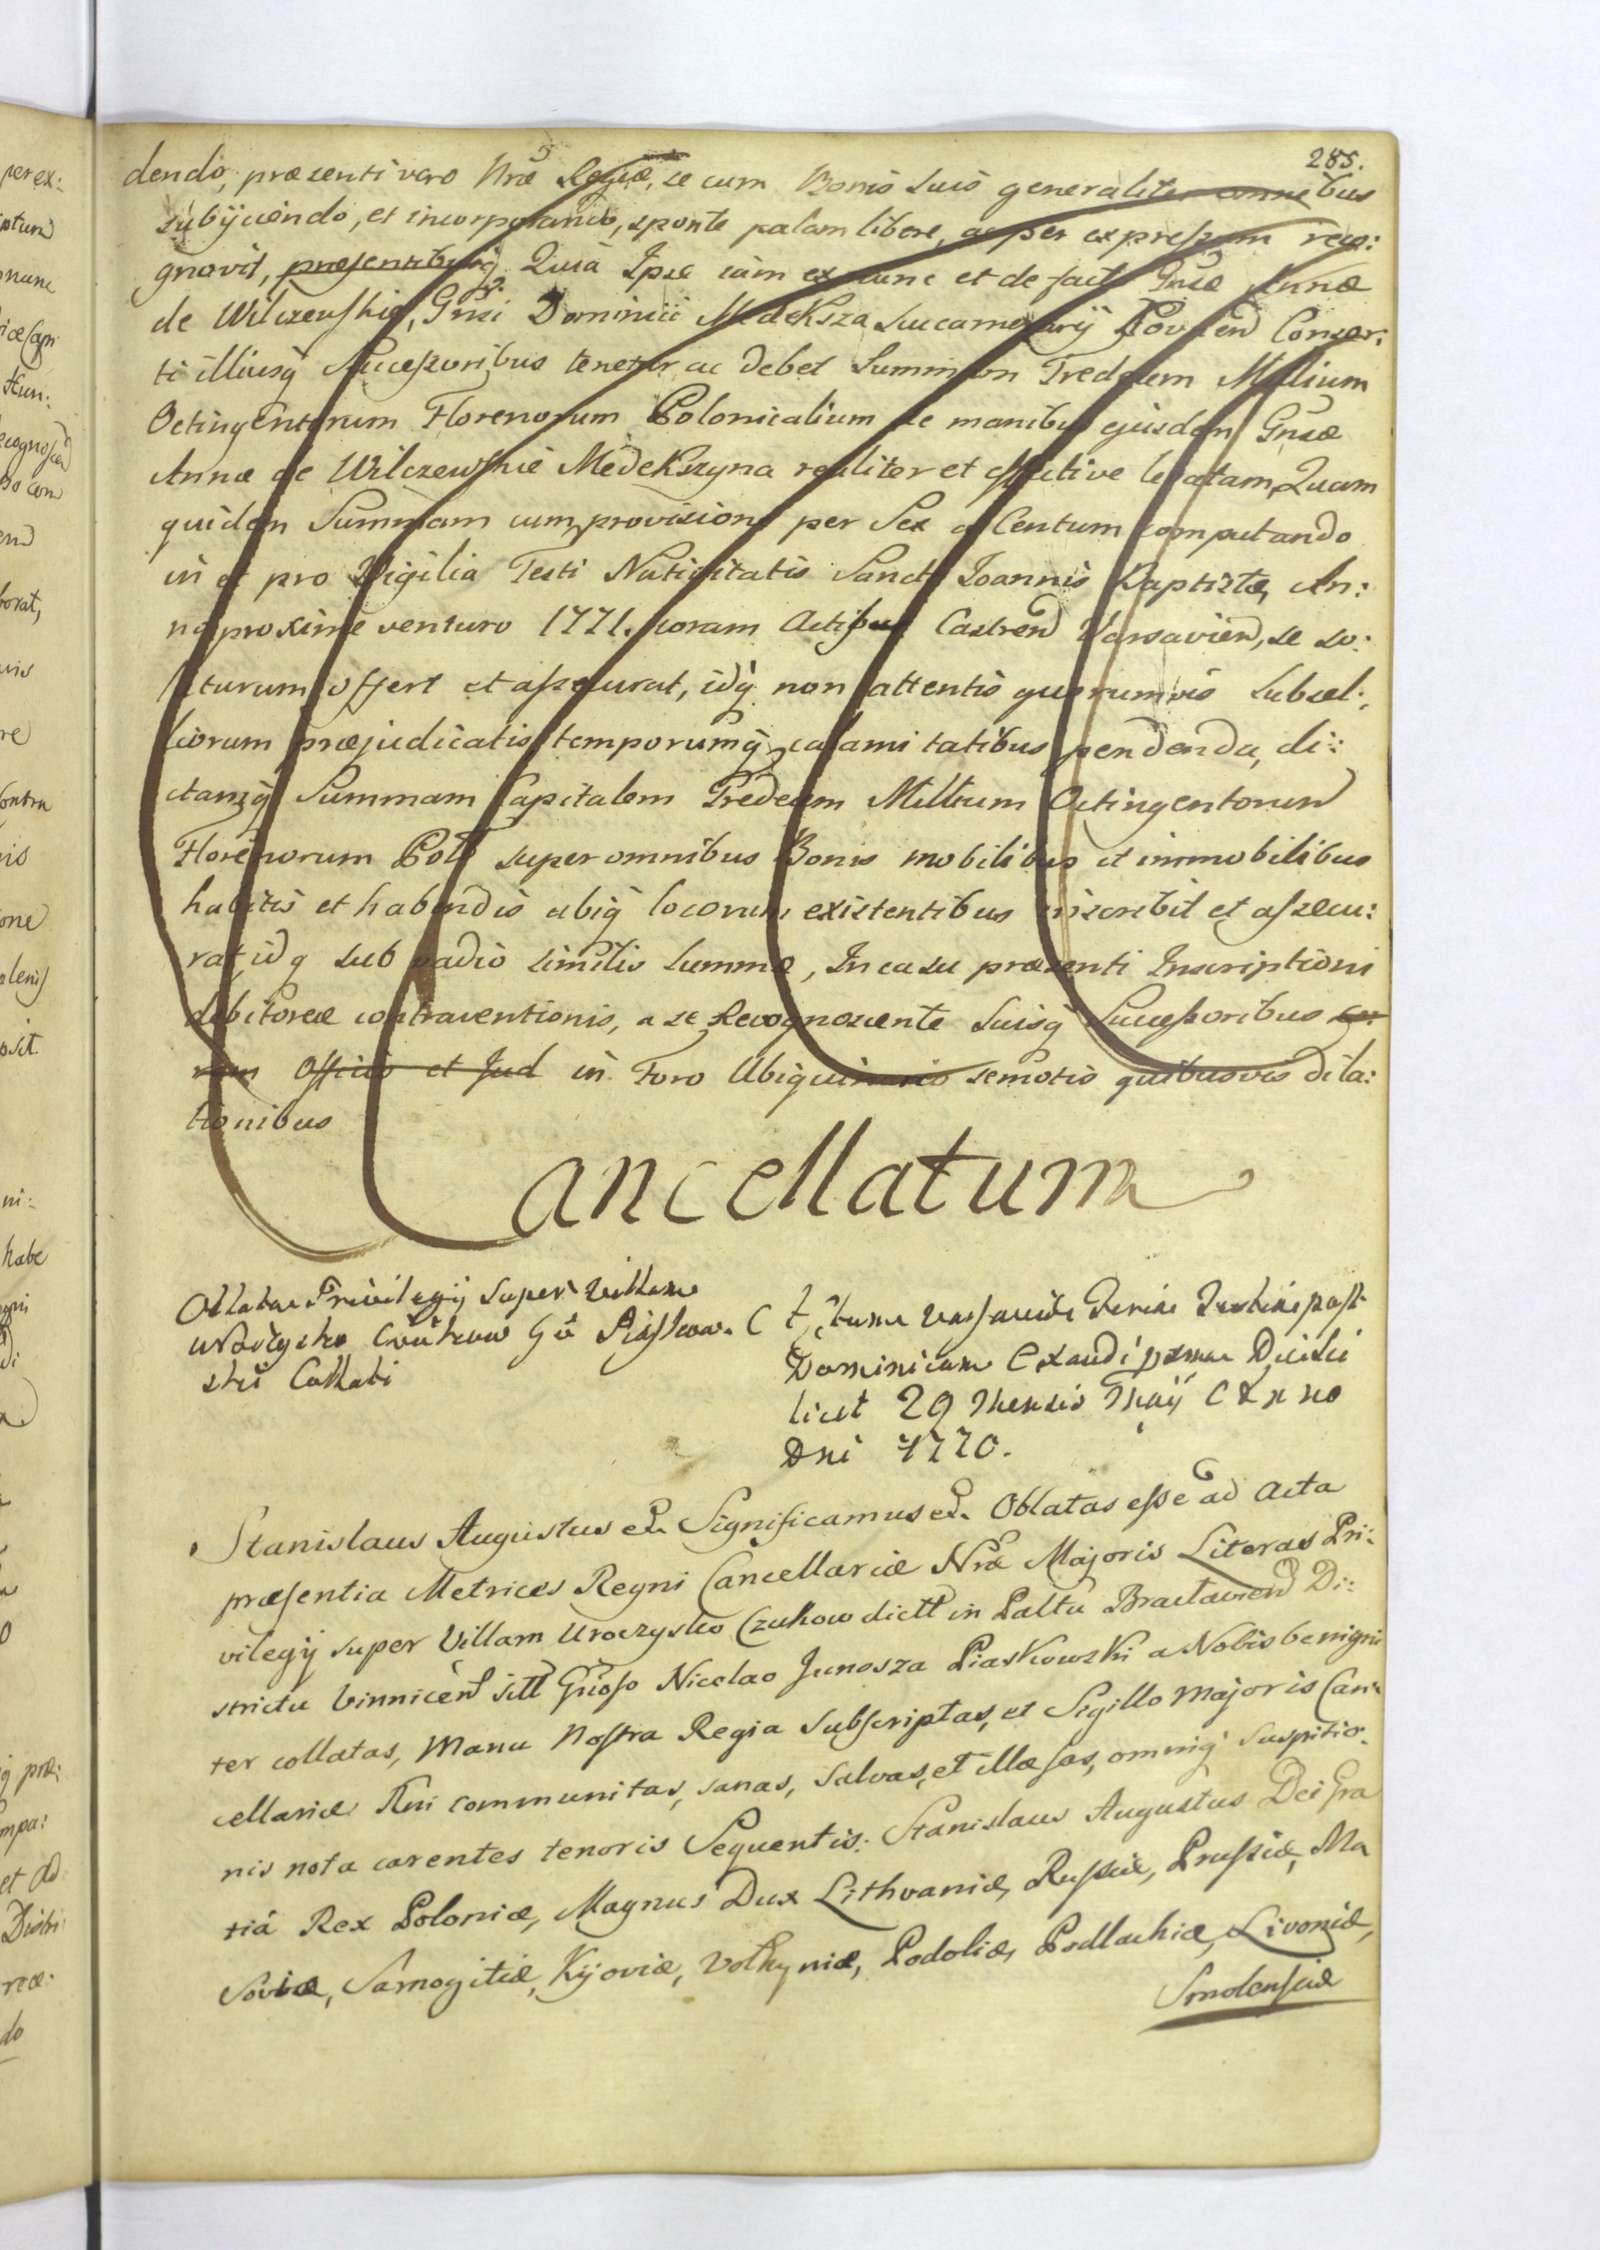 285.
dendo, præsenti vero Nræ Regiæ, se cum Bonis suis generaliter omnibus
subijciendo, et incorporando, sponte palam libere, ac per expressum reco:
gnovit, præsentibusq. Quia Ipse iam ex nunc et de facto Gnsæ Annæ
de Wilczewskie, Gnsi Dominici Medeksza Succamerarij Kovnen Conser:
ti illiusq Successoribus tenetur ac debet Summam Tredecim Millium
Octingentorum Florenorum Polonicalium de manibus ejusdem Gnsæ
Annæ de Wilczewskie Medekszyna realiter et effective levatam, Quam
quidem Summam cum provisione per Sex a Centum computando
in et pro Vigilia Festi Nativitatis Sancti Joannis Baptistæ, An:
no proxime venturo 1771. coram Actibus Castren Varsavien, se so:
luturum offert et assecurat, idq non attentis quorumvis Subsel:
liorum præjudicatis temporumq calamitatibus pendenda, di:
ctamq Summam Capitalem Tredecim Millium Octingentorum
Florenorum Poll super omnibus Bonis mobilibus et immobilibus
habitis et habendis ubiq locorum existentibus inscribit et assecu:
rat, idq sub vadio similis summæ, In casu præsenti Inscriptioni
debitoreæ contraventionis, a se Recognoscente Suisq Successoribus co:
ram Officio et Jud in Foro Ubiquinario semotis quibusvis dila:
tionibus
Cancellatum
Oblata Privilegij super Villam
Uroczysko Czuhow Gō Piaskow.
ski Collati
Actum Varsaviæ Feria Tertia post
Dominicam Exaudi pxma Die sci
licet 29 Mensis Maij Anno
Dni 1770.
Stanislaus Augustus etc. Significamus etc. Oblatas esse ad Acta
præsentia Metrices Regni Cancellariæ Nræ Majoris Literas Pri:
vilegij super Villam Uroczysko Czuhow dictt in Paltu Braclavien Di:
strictu Vinnicen sitt Gnoso Nicolao Junosza Piaskowski a Nobis benigni
ter collatas, Manu Nostra Regia Subscriptas, et Sigillo Majoris Can:
cellariæ Rni communitas, sanas, Salvas, et illæsas, omniq suspitio.
nis nota carentes tenoris Sequentis: Stanislaus Augustus Dei Gra
tiá Rex Poloniæ, Magnus Dux Lithvaniæ, Russiæ, Prussiæ, Ma
soviæ, Samogitiæ, Kijoviæ, Volhyniæ, Podoliæ, Podlachiæ, Livoniæ,
Smolensciæ